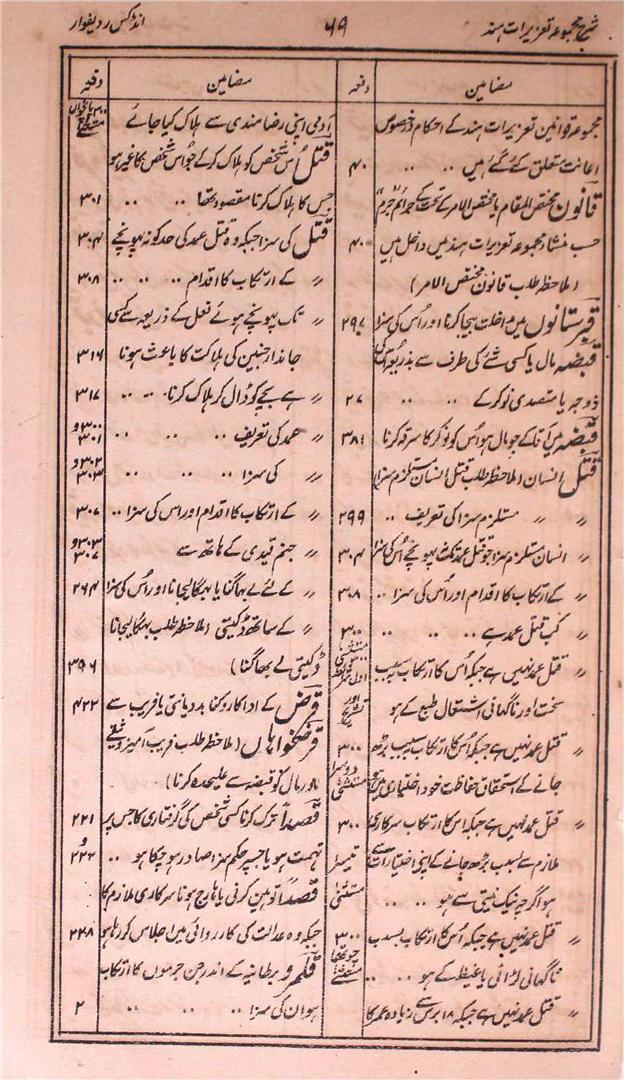 شرح مجموعہ تعزیرات ہند ۶۹ انڈکس ردیفوار
مضامین دفعہ
مجموعہ قوانین تعزیرات ہند کے احکام درخصوص
اعانت متعلق کئے گئے ہیں .. .. ۴۰
قانون مختص المقام یا مختص الامر کے تحت کے جرائم جرم
حسب منشا مجموعہ تعزیرات ہند میں داخل ہیں ۴۰
(ملاحظہ طلب قانون مختص الامر)
قبرستانوں میں مداخلت بیجا کرنا اور اُس کی سزا ۲۹۷
قبضہ مال یا کسی شئے کی طرف سے بذریعہ اُس کی
زوجہ یا متصدی نوکر کے .. .. ۲۷
قبضہ میں آقا کے جو مال ہو اُس کو نوکر کا سرقہ کرنا ۳۸۱
قتل انسان (ملاحظہ طلب قتل انسان مستلزم سزا)
〃 〃 مستلزم سزا کی تعریف .. ۲۹۹
〃 انسان مستلزم سزا جو قتل عمد تک نہ پہونچے اُس کی سزا ۳۰۴
〃 کے ارتکاب کا اقدام اور اُس کی سزا .. ۳۰۸
〃 کب قتل عمد ہے .. .. .. ۳۰۰
〃 قتل عمد نہیں ہے جبکہ اُس کا ارتکاب بسبب
سخت اور ناگہانی اشتعال طبع کے ہو
〃 قتل عمد نہیں ہے جبکہ اُس کا ارتکاب بسبب بڑھ ۳۰۰
جانے کے استحقاق حفاظت خود اختیاری میں دوسرا مستثنیٰ
〃 قتل عمد نہیں ہے جبکہ اس کا ارتکاب سرکاری ۳۰۰
ملازم سے بسبب بڑھ جانے کے اپنی اختیارات سے تیسرا
ہو اگرچہ نیک نیتی سے ہو .. .. مستثنیٰ
〃 قتل عمد نہیں ہے جبکہ اُس کا ارتکاب بسبب ۳۰۰
ناگہانی لڑائی یا غیظ کے ہو .. .. چوتھا مستثنیٰ
〃 قتل عمد نہیں ہے جبکہ ۱۸ برس سے زیادہ عمر کا
مضامین دفعہ
آدمی اپنی رضامندی سے ہلاک کیا جائے ۳۰۰ پانچواں مستثنیٰ
قتل اُس شخص کو ہلاک کرکے جو اُس شخص کا غیر ہو
جس کا ہلاک کرنا مقصود تھا .. .. ۳۰۱
قتل کی سزا جبکہ وہ قتل عمد کی حد کو نہ پہونچے ۳۰۴
〃 کے ارتکاب کا اقدام .. .. .. ۳۰۸
〃 تک پہونچے ہوئے فعل کے ذریعہ سے کسی
جاندار جنین کی ہلاکت کا باعث ہونا ۳۱۶
〃 ہے بچے کو ڈال کر ہلاک کرنا .. .. ۳۱۷
〃 عمد کی تعریف .. .. .. ۳۰۰ و ۳۰۱
〃 کی سزا .. .. .. ۳۰۲ و ۳۰۳
〃 کے ارتکاب کا اقدام اور اس کی سزا .. ۳۰۷
〃 جنم قیدی کے ہاتھ سے ۳۰۳ و ۳۰۷
〃 کے لئے لے بھاگنا یا بھگا لیجانا اور اُس کی سزا ۳۶۴
〃 کے ساتھ ڈکیتی (ملاحظہ طلب بھگا لیجانا
ڈکیتی لے بھاگنا) ۳۹۶
قرض کے ادا کا روکنا بددیانتی یا فریب سے ۴۲۲
قرضخواہان (ملاحظہ طلب فریب آمیز وثیقے
اور مال کو قبضہ سے علیحدہ کرنا)
قصداً ترک کرنا کسی شخص کی گرفتاری کا جس پر ۲۲۱
تہمت ہو یا جسپر حکم سزا صادر ہو چکا ہو .. و ۲۲۲
قصداً توہین کرنی یا ہارج ہونا سرکاری ملازم کا
جبکہ وہ عدالت کی کارروائی میں اجلاس کر رہا ہو ۲۲۸
قلمرو برطانیہ کے اندر جن جرموں کا ارتکاب
ہو ان کی سزا .. .. .. ۲